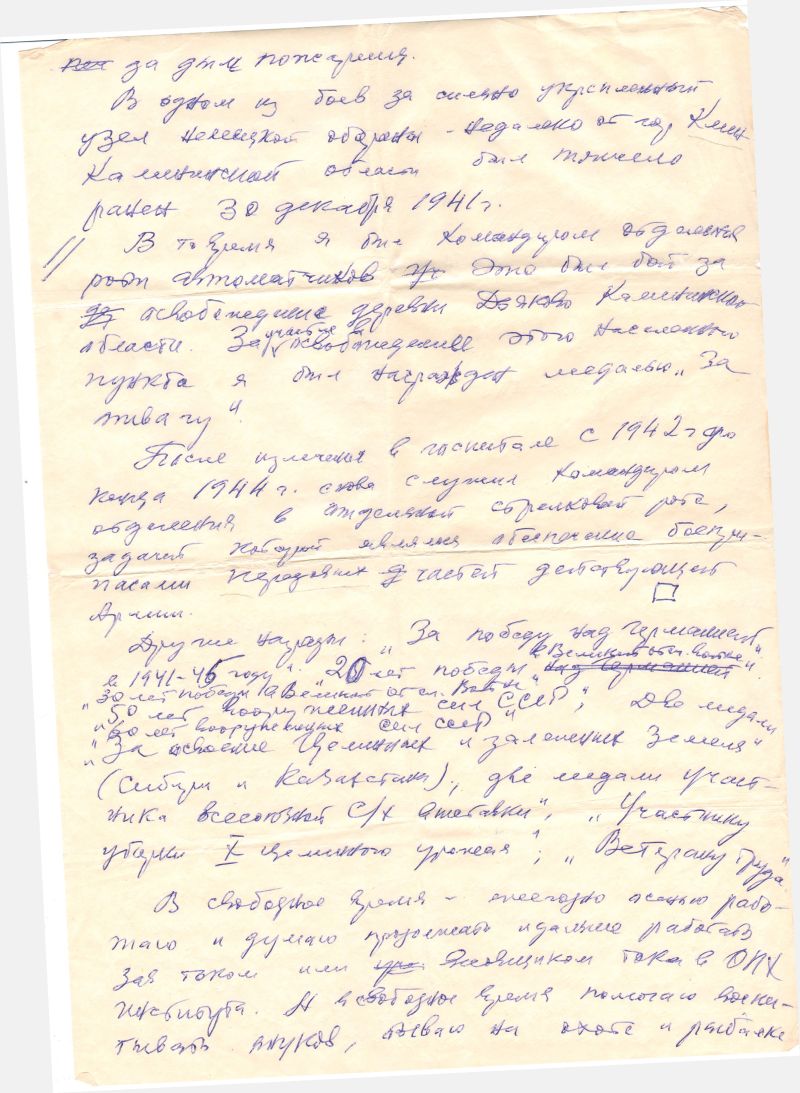 за дни пожарища.
В одном из боев за сильно укрепленный
узел немецкой обороны - недалеко от гор Клин
Калининской области был тяжело
ранен 30 декабря 1941 г.
// В то время я был командиром отделения
роты автоматчиков Это был бой за
освобождение деревни Калининской
области. За участие в освобождение этого населенного
пункта я был награжден медалью „За
отвагу".
После излечения в госпитале с 1942 г до
конца 1944 г. снова служил командиром
отделения в отдельной стрелковой роте,
задачей которой являлся обеспечение боепри-
пасами передовых частей действующей
Армии.
Другие награды: „За победу над Германией"
в 1941-45 году": "20 лет победы в Великой отеч. войне".
„30 лет победы в Великой отеч. Войне"
„50 лет вооруженных сил СССР", Две медали
„60 лет вооруженных сил СССР"
„За освоение Целинных и залежных Земель"
(Сибири и Казахстана)., две медали участ-
ника всесоюзной С/х выставки", „Участнику
уборки X целинного урожая"; „Ветерану труда"
В свободное время - ежегодно осенью рабо-
таю и думаю продолжать и дальше работать
зав током или весовщиком тока в ОПХ
института. А в свободное время помогаю воспи-
тывать внуков, бываю на охоте и рыбалке